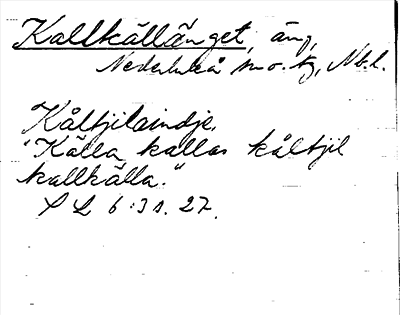 Kallkällänget, äng,
Nederluleå sn o. tg, Nb. l.
Kåltjilaindje.
"Källa kallas kåltjil
kallkälla."
S L 6:3 s. 27.